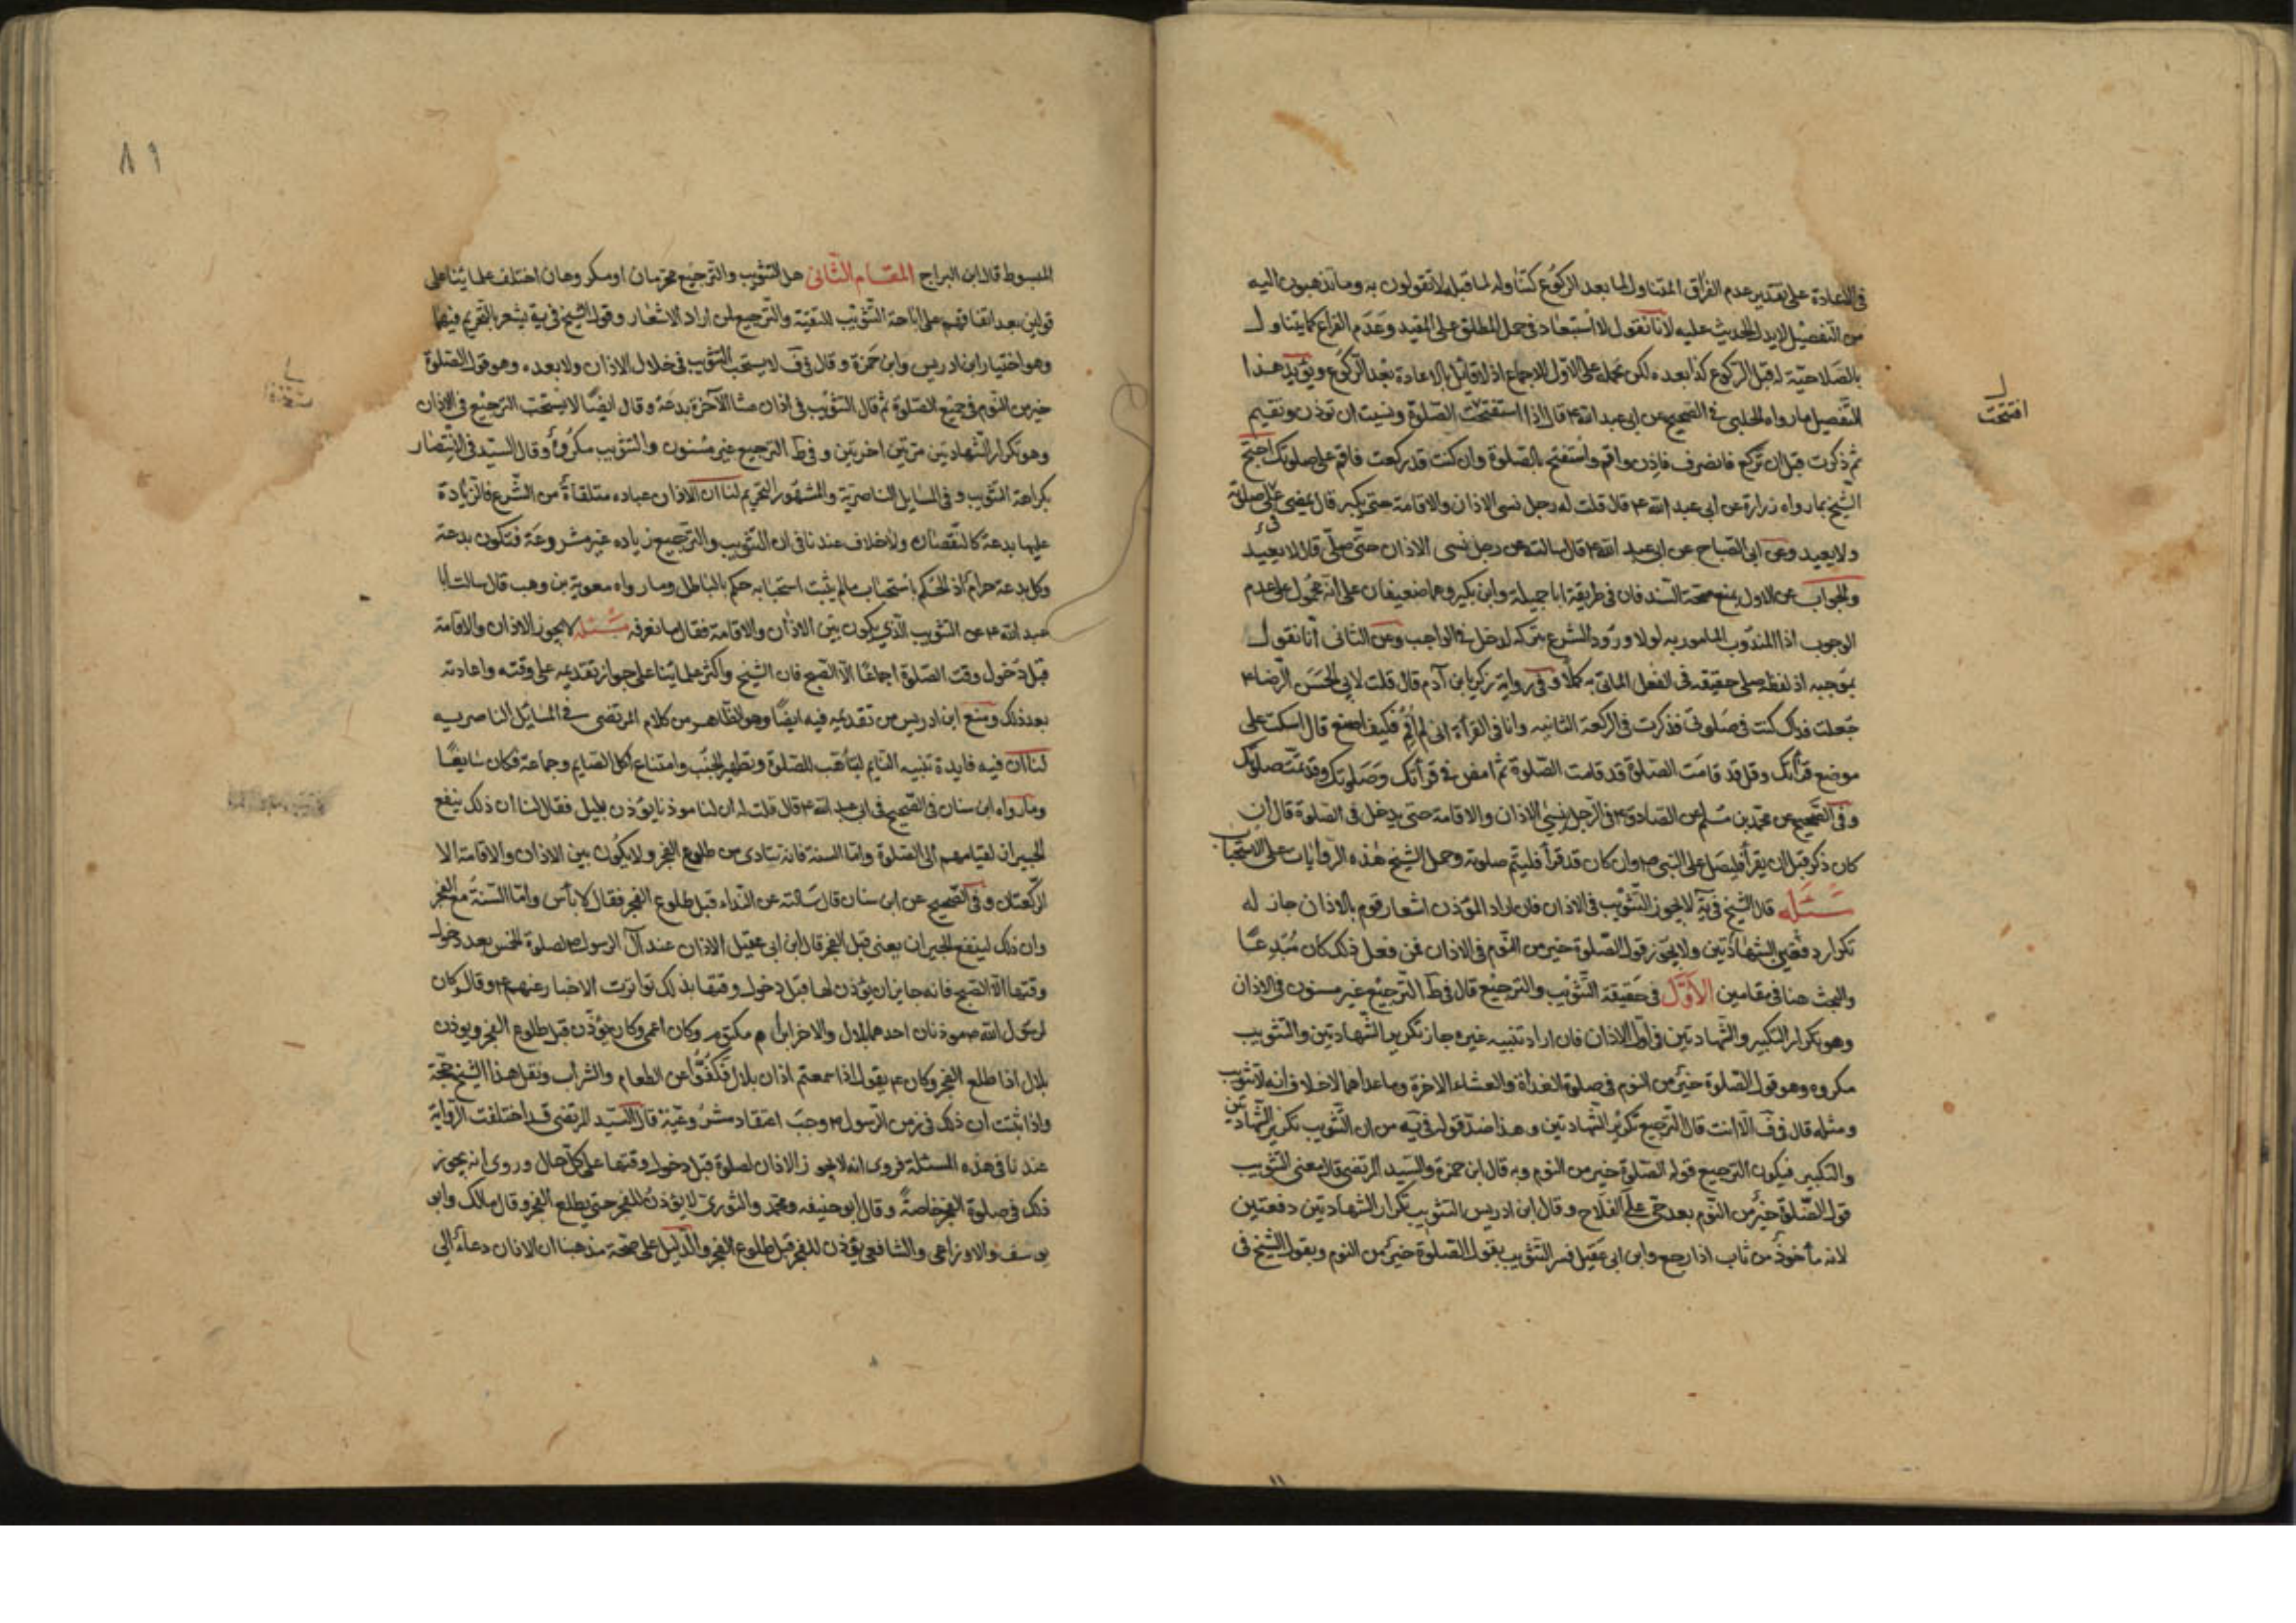 في الاعادة على تقدير عدم الفراق المتناول لما بعد الركوع كتناوله لما قبله لا تقولون به وما تذهبون اليه
من التفصيل لا يدل الحديث عليه لانا نقول لا استبعاد في حمل المطلق على المقيد وعدم الفراغ كما يتناول
بالصلاحية له قبل الركوع كذا بعده لكن نحمله على الاول للاجماع اذ لا قائل بالاعادة بعد الركوع ويؤيد هذا
التفصيل ما رواه الحلبي في الصحيح عن ابي عبد الله ع قال اذا استفتحت الصلوة ونسيت ان توذن وتقيم
افتتحت
ثم ذكرت قبل ان تركع فانصرف فاذن واقم واستفتح بالصلوة وان كنت قد ركعت فاقم على صلوتك احتج
الشيخ بما رواه زرارة عن ابي عبد الله ع قال قلت له رجل نسى الاذان والاقامة حتى يكبر قال يمضي على صلوته
ولا يعيد وعن ابي الصباح عن ابي عبد الله ع قال سالته عن رجل نسى الاذان حتى صلى قال لا يعيد
والجواب عن الاول بمنع صحة السند فان في طريقه ابا جميلة وابن بكير وهما ضعيفان على انه محمول على عدم
الوجوب اذ المندوب المامور به لولا ورود الشرع بتركه لدخل في الواجب وعن الثاني انا نقول
بموجبه اذ لفظه صلى حقيقه في الفعل الماتي به كملا وفي رواية زكريا بن آدم قال قلت لابي الحسن الرضا ع
جعلت فداك كنت في صلوتي فذكرت في الركعة الثانيه وانا في القرأة اني لم اقم فكيف اصنع قال اسكت على
موضع قرأتك وقل قد قامت الصلوة قد قامت الصلوة ثم امض في قرأتك وصلوتك وقد تمت صلوتك
وفي الصحيح عن محمد بن مسلم عن الصادق ع في الرجل ينسى الاذان والاقامة حتى يدخل في الصلوة قال ان
كان ذكر قبل ان يقرأ فليصل على النبي ص وان كان قد قرأ فليتم صلوته وحمل الشيخ هذه الروايات على الاستحباب
مسئله قال الشيخ في يه لا يجوز التثويب في الاذان فان اراد المؤذن اشعار قوم بالاذان جاز له
تكرار دفعتين الشهادتين ولا يجوز قول الصلوة خير من النوم في الاذان فمن فعل ذلك كان مبدعا
والبحث هنا في مقامين الاول في حقيقة التثويب والترجيع قال في ط الترجيع غير مسنون في الاذان
وهو تكرار التكبير والشهادتين في اول الاذان فان اراد تنبيه غيره جاز تكرير الشهادتين والتثويب
مكروه وهو قول الصلوة خير من النوم في صلوة الغداة والعشاء الاخرة وما عداهما لا خلاف انه لا تثويب
ومثله قال في ف الا انت قال الترجيع تكرير الشهادتين وهذا ضد قوله في يه من ان التثويب تكرير الشهادتين
والتكبير فيكون الترجيع قوله الصلوة خير من النوم وبه قال ابن حمزة والسيد المرتضى قال معنى التثويب
قول الصلوة خير من النوم بعد حي على الفلاح وقال ابن ادريس التثويب تكرار الشهادتين دفعتين
لانه مأخوذ من ثاب اذا رجع وابن ابي عقيل فسر التثويب بقول الصلوة خير من النوم وبقول الشيخ في
٨٩
المبسوط قال ابن البراج المقام الثاني هل التثويب والترجيع محرمان او مكروهان اختلف علمائنا على
قولين بعد اتفاقهم على اباحة التثويب للتقية والترجيع لمن اراد الاشعار وقول الشيخ في يه يشعر بالتحريم فيهما
وهو اختيار ابن ادريس وابن حمزة وقال في ف لا يستحب التثويب في خلال الاذان ولا بعده وهو قول الصلوة
خير من النوم في جميع الصلوة ثم قال التثويب في اذان عشا الآخرة بدعة وقال ايضا لا يستحب الترجيع في الاذان
وهو تكرار الشهادتين مرتين اخرتين وفي ط الترجيع غير مسنون والتثويب مكروه وقال السيد في الانتصار
بكراهة التثويب وفي المسايل الناصرية والمشهور التحريم لنا ان الاذان عباده متلقاة من الشرع فالزيادة
عليها بدعة كالنقصان ولا خلاف عندنا في ان التثويب والترجيع زياده غير مشروعة فتكون بدعة
وكل بدعة حرام اذ الحكم باستحباب ما لم يثبت استحبابه حكم بالباطل وما رواه معوية بن وهب قال سالت ابا
عبد الله ع عن التثويب الذي يكون بين الاذان والاقامة فقال ما نعرفه مسئله لا يجوز الاذان والاقامة
قبل دخول وقت الصلوة اجماعا الا الصبح فان الشيخ واكثر علمائنا على جواز تقديمه على وقته واعادته
بعد ذلك ومنع ابن ادريس من تقديمه فيه ايضا وهو الظاهر من كلام المرتضى في المسايل الناصريه
لنا ان فيه فايدة تنبيه النايم ليتأهب للصلوة وتطهير الجنب وامتناع اكل الصايم وجماعة فكان سايغا
وما رواه ابن سنان في الصحيح في ابي عبد الله ع قال قلت له ان لنا موذنا يؤذن بليل فقال لنا ان ذلك ينفع
الجيران لقيامهم الى الصلوة واما السنة فانه ينادى من طلوع الفجر ولا يكون بين الاذان والاقامة الا
الركعتان وفي الصحيح عن ابن سنان قال سالته عن النداء قبل طلوع الفجر فقال لا بأس واما السنة مع الفجر
وان ذلك لينفع الجيران يعني قبل الفجر قال ابن ابي عقيل الاذان عند آل الرسول ص لصلوة الخمس بعد دخول
وقتها الا الصبح فانه جايز ان يؤذن لها قبل دخول وقتها بذلك تواترت الاخبار عنهم ع وقال وكان
لرسول الله ص موذنان احدهما بلال والاخر ابن ام مكتوم وكان اعمى وكان يؤذن قبل طلوع الفجر ويوذن
بلال اذا طلع الفجر وكان ع يقول اذا سمعتم اذان بلال فكفوا عن الطعام والشراب ونقل هذا الشيخ حجة
واذا ثبت ان ذلك في زمن الرسول ص وجب اعتقاد مشروعيته قال السيد المرتضى قد اختلفت الرواية
عندنا في هذه المسئلة فروى انه لا يجوز الاذان لصلوة قبل دخول وقتها على كل حال وروى انه يجوز
ذلك في صلوة الفجر خاصة وقال ابو حنيفه ومحمد والثوري لا يؤذن للفجر حتى يطلع الفجر وقال مالك وابو
يوسف والاوزاعي والشافعي يؤذن للفجر قبل طلوع الفجر والدليل على صحة مذهبنا ان الاذان دعاء الى